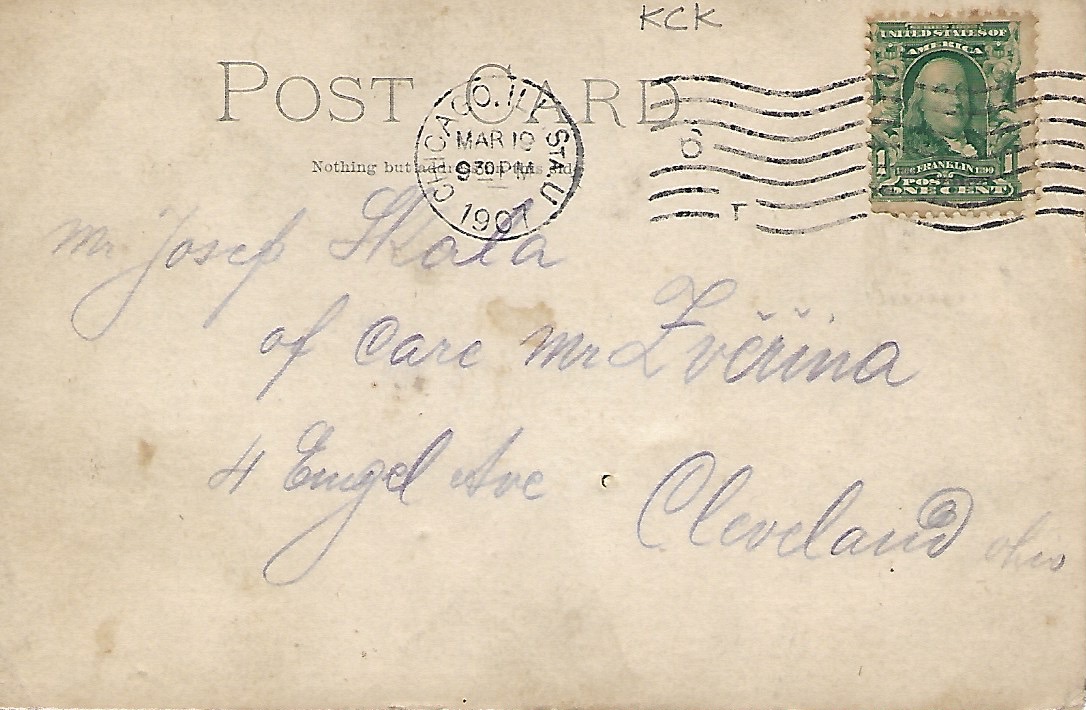 KCK
POST CARD
Nothing but address on this side
CHICAGO, ILL. STA U
MAR 19
930 PM
1907
UNITED STATES OF
AMERICA
FRANKLIN
1 1
POSTAGE
ONE CENT
Mr Josef Skala
of Care Mr Zvěřina
4 Engel Ave
Cleveland Ohio